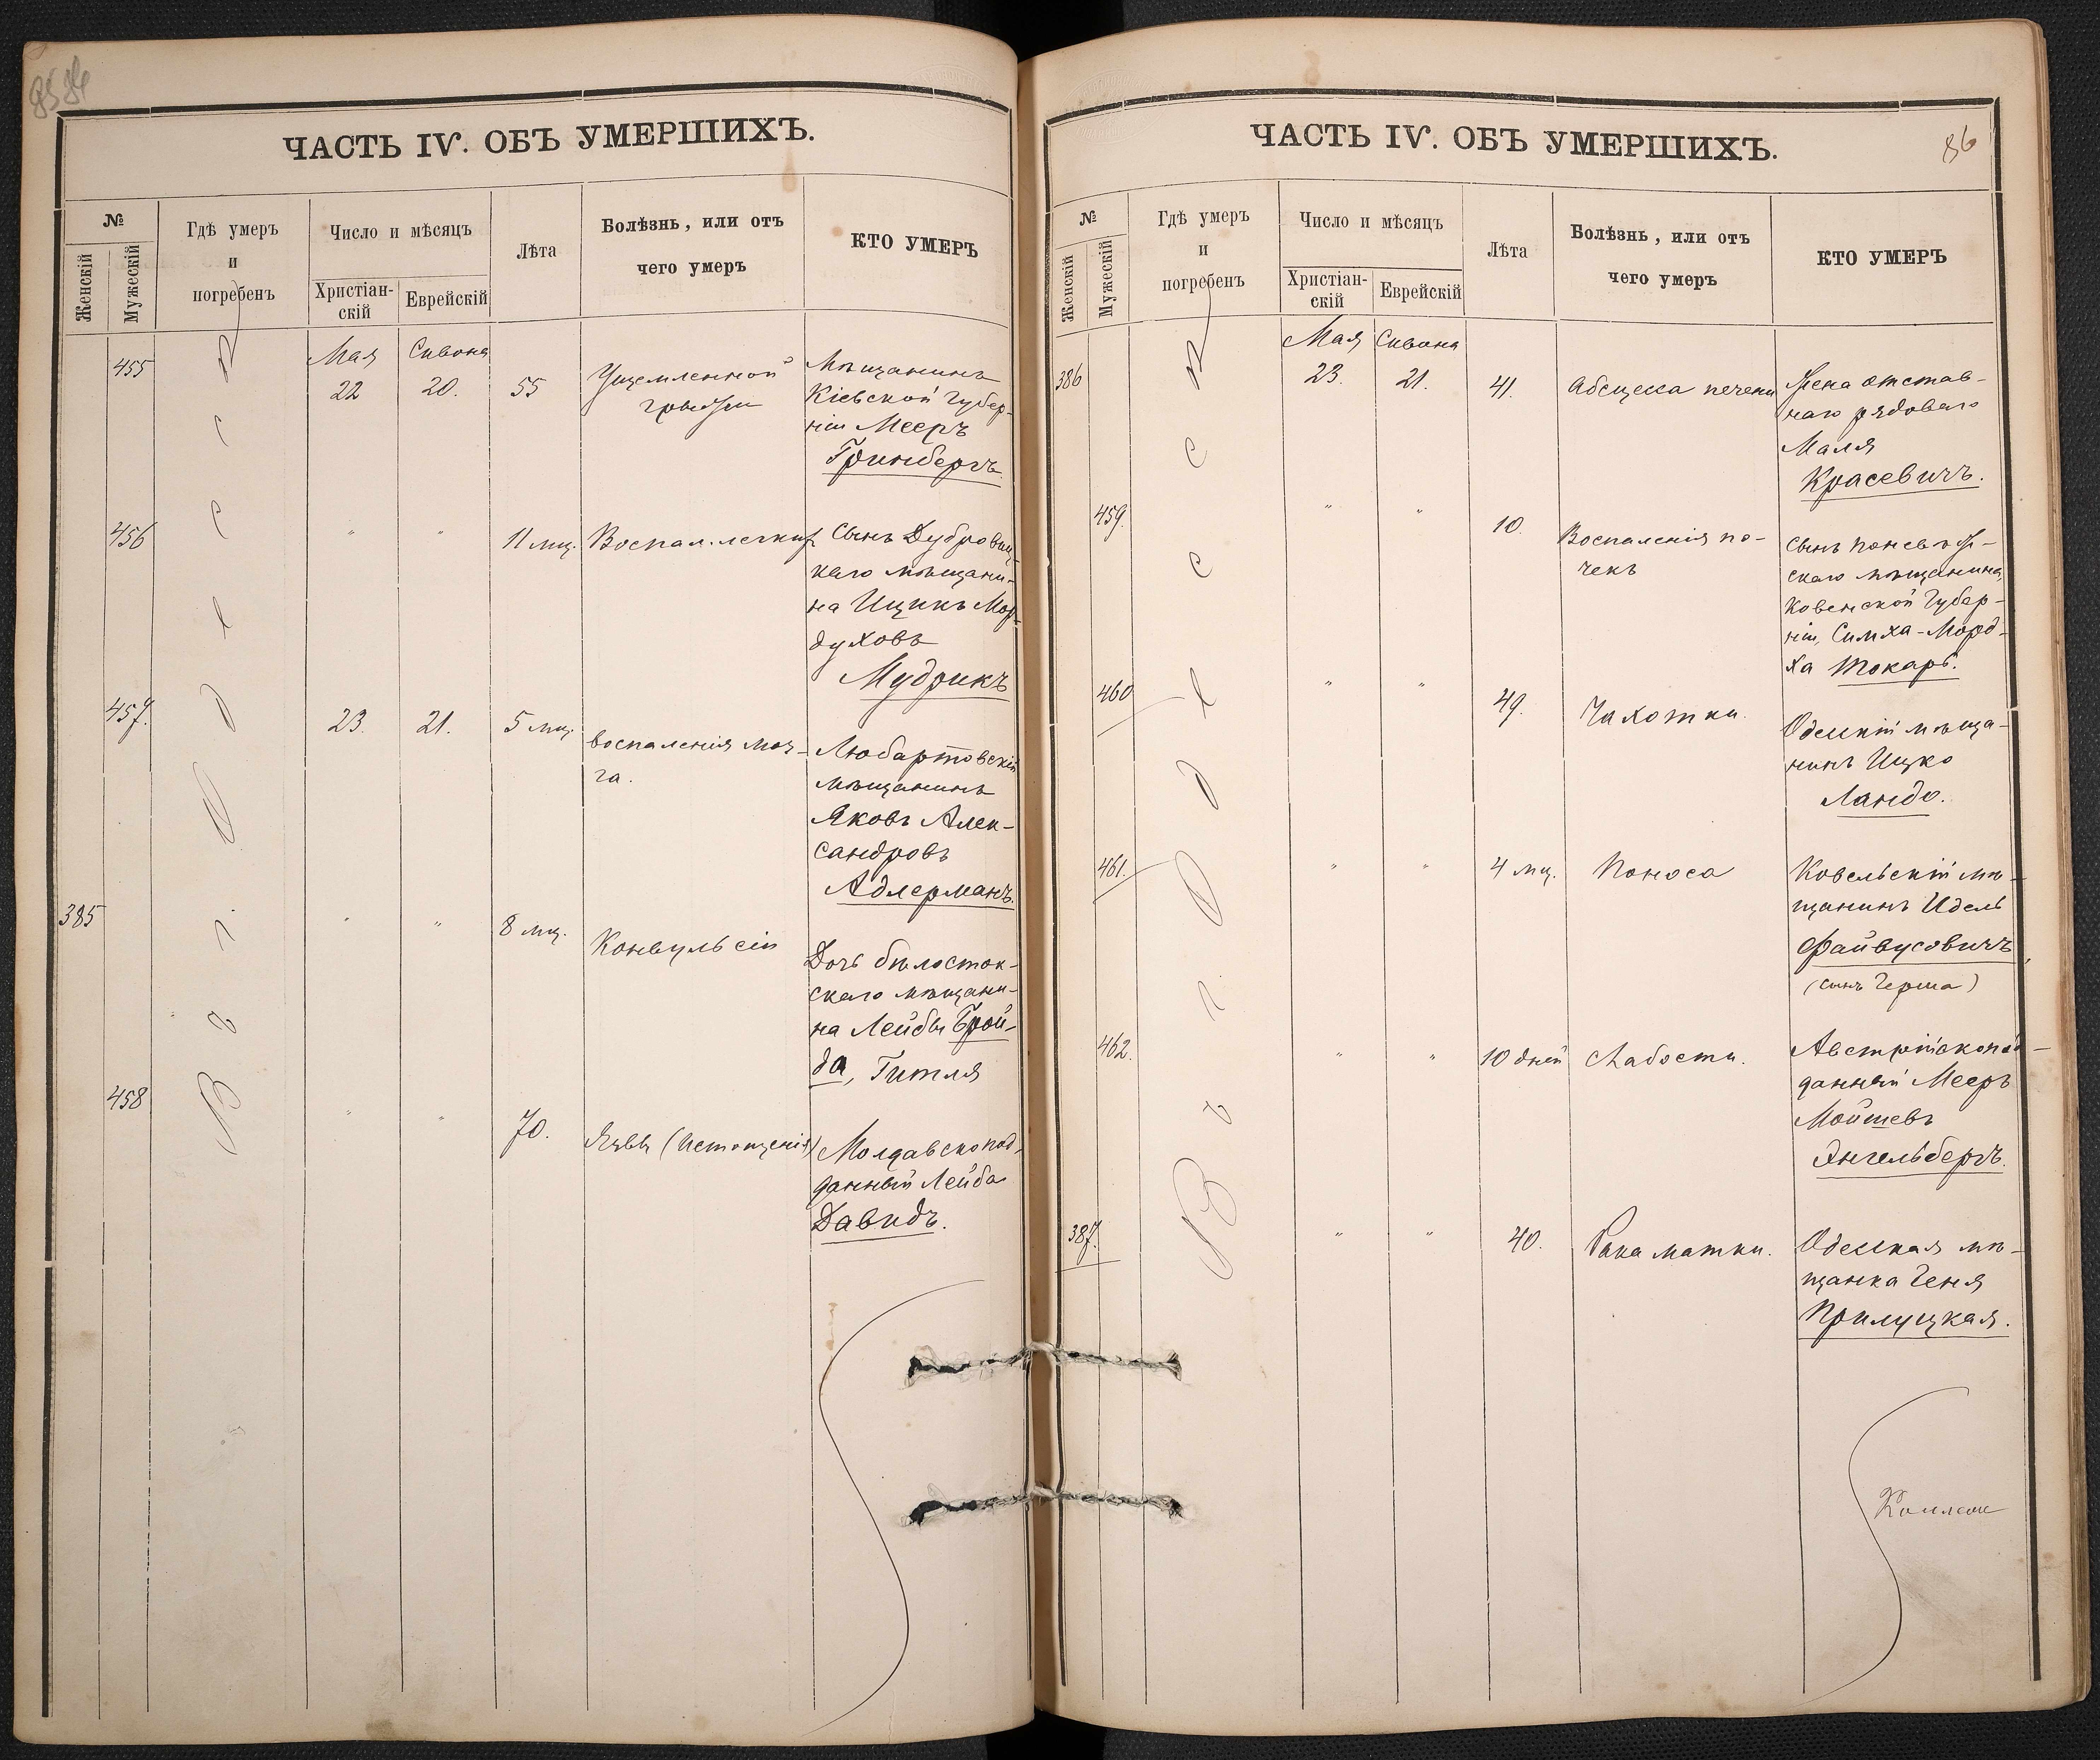 ЧАСТЬ IV. ОБЪ УМЕРШИХЪ.
№
Женскій
Мужескій
Гдѣ умеръ
и
погребенъ
Число и мѣсяцъ
Христіан-
скій
Еврейскій
Лѣта
Болѣзнь, или отъ
чего умеръ
КТО УМЕРЪ
Въ г. Одессѣ
455
Мая
22
Сивона
20.
55
Ущемленной
грыжи
Мѣщанинъ
Кіевской Губер-
ніи Мееръ
Гринбергъ.
456
"
"
11 мц.
Воспал. легких
Сынъ Дубровиц-
каго мѣщани-
на Ицикъ Мор-
духовъ
Мудрикъ
457.
23.
21.
5 мц.
воспаленія моз-
га.
Любартовскій
мѣщанинъ
Яковъ Алек-
сандровъ
Адлерманъ.
385
"
"
8 мц.
Конвульсіи
Дочь бѣлосток-
скаго мѣщани-
на Лейбы Брой-
да, Гитля
458
"
"
70.
Язвы (истощенія)
Молдавскопод-
данный Лейба
Давидъ.
ЧАСТЬ IV. ОБЪ УМЕРШИХЪ.
86
№
Женскій
Мужескій
Гдѣ умеръ
и
погребенъ
Число и мѣсяцъ
Христіан-
скій
Еврейскій
Лѣта
Болѣзнь, или отъ
чего умеръ
КТО УМЕРЪ
Въ г. Одессѣ
386
Мая
23.
Сивона
21.
41.
Абсцесса печени
Жена отстав-
наго рядоваго
Маля
Красевичъ.
459.
"
"
10.
Воспаленія по-
чекъ
Сынъ Поневѣж-
скаго мѣщанина,
Ковенской Губер-
ніи, Симха-Морд-
ха Токарь.
460
"
"
49.
Чахотки.
Одесскій мѣща-
нинъ Ицко
Ландо.
461.
"
"
4 мц.
Поноса
Ковельскій мѣ-
щанинъ Идель
Файвусовичъ
(сынъ Герша)
462.
"
"
10 дней
Слабости.
Австрійскопод-
данный Мееръ
Мойшевъ
Энгельбергъ.
387.
"
"
40.
Рака матки.
Одесская мѣ-
щанка Геня
Прилуцкая.